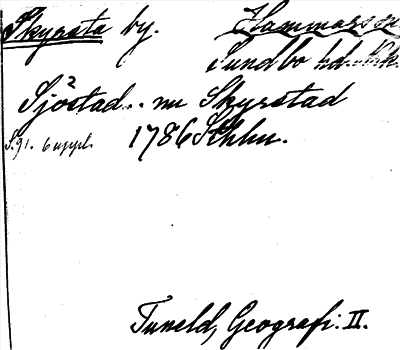 Skyrsta by. Hammars sn
Sundbo hd.
Sjöstad.. nu Skyrstad
S.91. 6 uppl. 1786
Tuneld, Geografi. II.